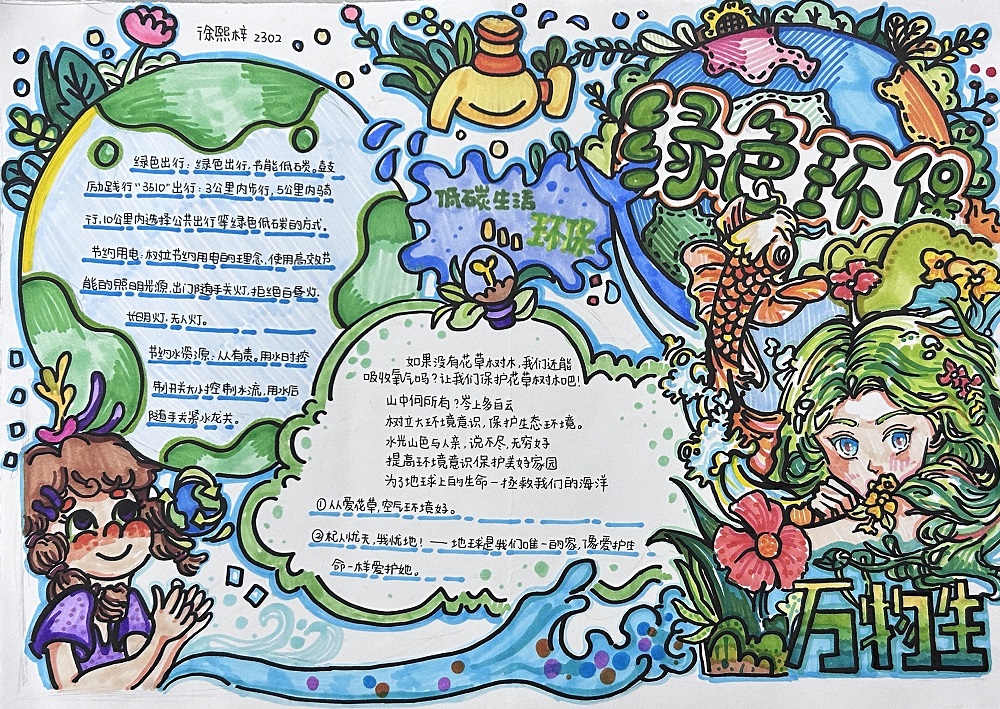 徐熙梓 2302
绿色环保
绿色出行：绿色出行，节能低碳。鼓
励践行“3510”出行：3公里内步行，5公里内骑
行，10公里内选择公共出行等绿色低碳的方式。
节约用电：树立节约用电的理念，使用高效节
能的照明光源，出门随手关灯，拒绝白昼灯，
长明灯，无人灯。
节约水资源：人有责。用水时控
制开关大小控制水流，用水后
随手关紧水龙头。
低碳生活
环保
如果没有花草树木，我们还能
吸收氧气吗？让我们保护花草树木吧！
山中何所有？岑上多白云
树立大环境意识，保护生态环境。
水光山色与人亲，说不尽，无穷好
提高环境意识保护美好家园
为了地球上的生命－拯救我们的海洋
①人人爱花草，空气环境好。
②杞人忧天，我忧地！——地球是我们唯一的家，像爱护生
命一样爱护她。
万物生